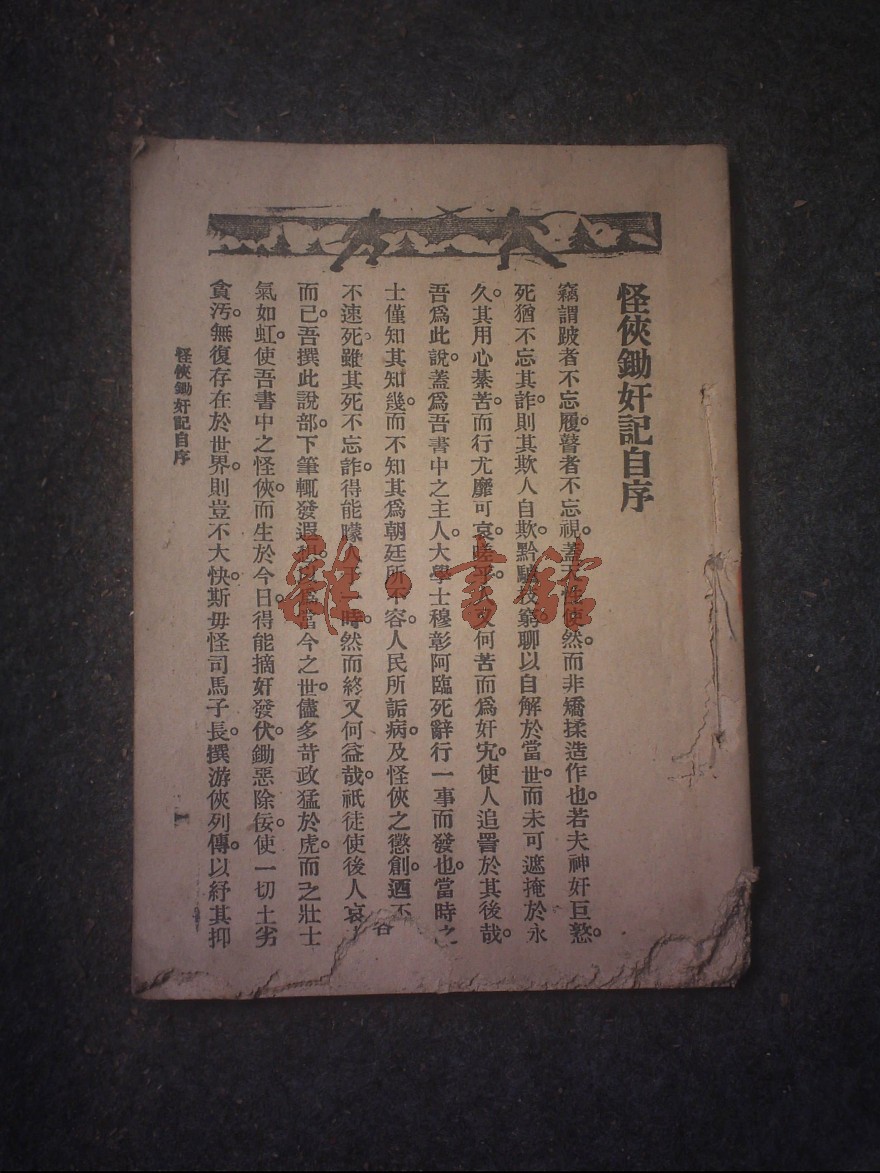 怪俠鋤奸記自序
竊謂跛者不忘履。瞽者不忘視。蓋天性使然。而非矯揉造作也。若夫神奸巨憝。
死猶不忘其詐。則其欺人自欺。黔驢技窮。聊以自解於當世。而未可遮掩於永
久。其用心綦苦。而行尤靡可哀。嗟乎。人又何苦而爲奸宄。使人追詈於其後哉。
吾爲此說。蓋爲吾書中之主人。大學士穆彰阿臨死辭行一事而發也。當時之
士僅知其知幾。而不知其爲朝廷所不容。人民所詬病。及怪俠之懲創。迺不
不速死。雖其死不忘詐。得能矇人一時。然而終又何益哉。祇徒使後人哀
而已。吾撰此說部。下筆輒發遐想。以爲當今之世。儘多苛政猛於虎。而之壯士
氣如虹。使吾書中之怪俠。而生於今日。得能摘奸發伏。鋤惡除佞。使一切土劣
貪污。無復存在於世界。則豈不大快。斯毋怪司馬子長。撰游俠列傳。以紓其抑
怪俠鋤奸記自序
一
雜·書館